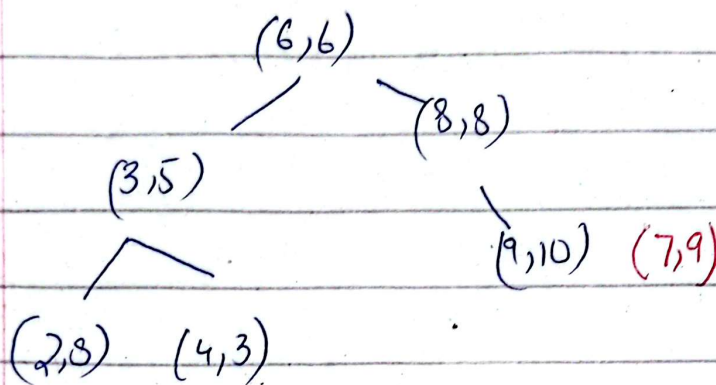 (6,6)
(8,8)
(3,5)
(9,10) (7,9)
(2,8) (4,3)